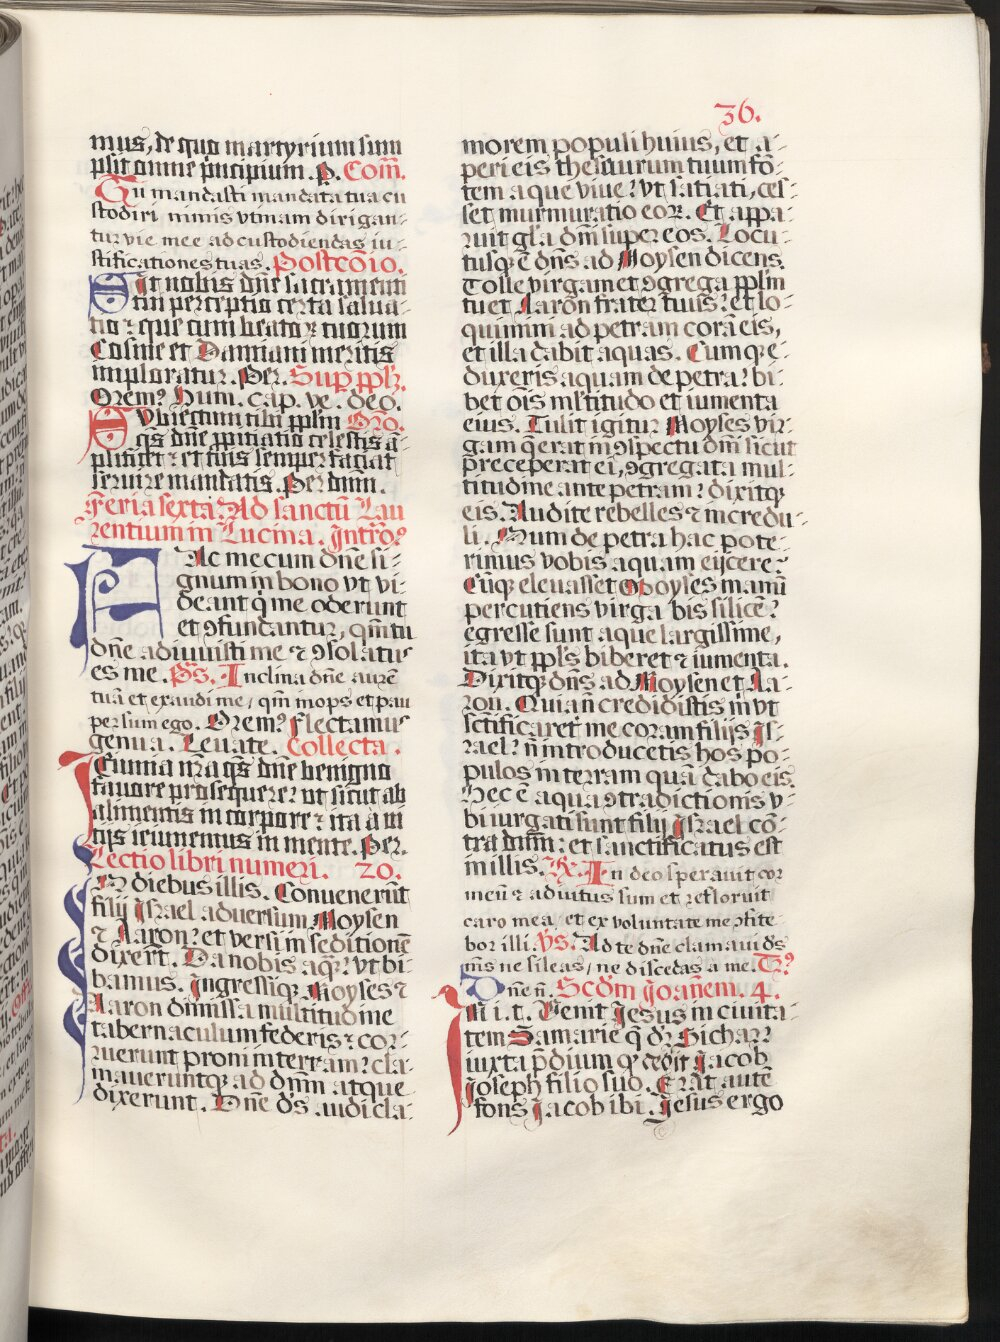 36.
mus, de quo martyrium sum
psit omne pͥncipium. p. Com̄.
Tu mandasti mandata tua cu
stodiri nimis vtinam dirigan-
tur vie mee ad custodiendas iu-
stificationes tuas. Postcōio.
Sit nobis dn̄e sacramenti
tui perceptio certa salua-
tio ⁊ que cum beatoꝝ tuorum
Cosme et Damiani meritis
imploratur. Per. Sup ppl̄ꝫ.
Orem⁹ Hum. cap. ve. deo.
Subiectum tibi ppl̄m Oro.
qs̄ dn̄e ppitiatio celestis ā-
plificet ⁊ et tuis semper faciat
seruire mandatis. Per dnm.
Feria sexta. Ad sanctū Lau
rentium in Lucina. Introⁱ⁹
Fac mecum dn̄e si-
gnum in bono vt vi-
deant q̇ me oderunt
et ꝯfundantur, qm̄ tu
dn̄e adiuuisti me ⁊ ꝯsolatus
es me. Ps̄. Inclina dn̄e aurē
tuā et exaudi me, qm̄ inops et pau
per sum ego. Orem⁹ flectamus
genua. Leuate. Collecta.
Ieiunia nr̄a qs̄ dn̄e benigno
fauore prosequere: vt sicut ab
alimentis in corpore ⁊ ita a vi
tijs ieiunentus in mente. Per.
Lectio libri numeri. 20.
In diebus illis. Conuenerūt
filij Israel aduersum Moysen
⁊ Aaron: et versi in seditionē
dixert̄. Da nobis aqꝫ: vt bi-
bamus. Ingressiqꝫ Moyses ⁊
Aaron dimissa multitudine
tabernaculum federis ⁊ cor-
ruerunt proni in terram: cla-
maueruntqꝫ ad dnm atque
dixerunt. Dn̄e ds̄ audi cla-
morem populi huius, et a-
peri eis thesaurum tuum fō-
tem aque viue: vt satiati, ces-
set murmuratio eoꝝ. Et appa-
ruit gl̄a dn̄i super eos. Locu-
tusqꝫ ē dn̄s ad Moysen dicens.
Tolle virgam et ꝯgrega ppl̄m
tu et Aaron frater tuus: et lo-
quimini ad petram corā eis,
et illa dabit aquas. Cumqꝫ e-
duxeris aquam de petra: bi-
bet ois ml̄titudo et iumenta
eius. Tulit igitur Moyses vir-
gam q̄ erat in ꝯspectu dn̄i sicut
preceperat ei, ꝯgregata mul-
titudine ante petram: dixitqꝫ
eis. Audite rebelles ⁊ incredu-
li. Num de petra hac pote-
rimus vobis aquam eijcere?
Cūqꝫ eleuasset Moyses manū
percutiens virga bis silicē:
egresse sunt aque largissime,
ita vt ppl̄s biberet ⁊ iumenta.
Dixitqꝫ dn̄s ad Moysen et Aa-
ron. Quia nō credidistis mͥ vt
sctificaret me coram filijs Is-
rael: nō introducetis hos po-
pulos in terram quā dabo eis.
Hec ē aqua ꝯtradictionis v-
bi iurgati sunt filij Israel cō-
tra dnm̄: et sanctificatus est
in illis. R. In deo sperauit cor
meū ⁊ adiutus sum et refloruit
caro mea, et ex voluntate mea ꝯfite
bor illi. Vs. Ad te dn̄e clamaui ds̄
ms̄ ne sileas, ne discedas a me. Tr⁹
Dn̄e n̄. Scd̄m Joānem. 4.
In i. t. Venit Jesus in ciuita-
tem Samarie q̄ dr̄ Sichar:
iuxta p̄dium qꝫ dedit Jacob
Joseph filio suo. Erāt autē
fons Jacob ibi. Jesus ergo